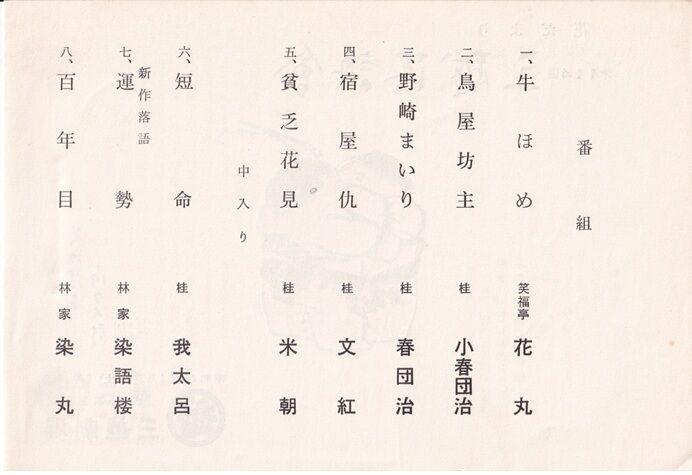 番組
一、牛ほめ 笑福亭 花丸
二、鳥屋坊主 桂 小春団治
三、野崎まいり 桂 春団治
四、宿屋仇 桂 文紅
五、貧乏花見 桂 米朝
中入り
六、短命 桂 我太呂
新作落語
七、運勢 林家 染語楼
八、百年目 林家 染丸